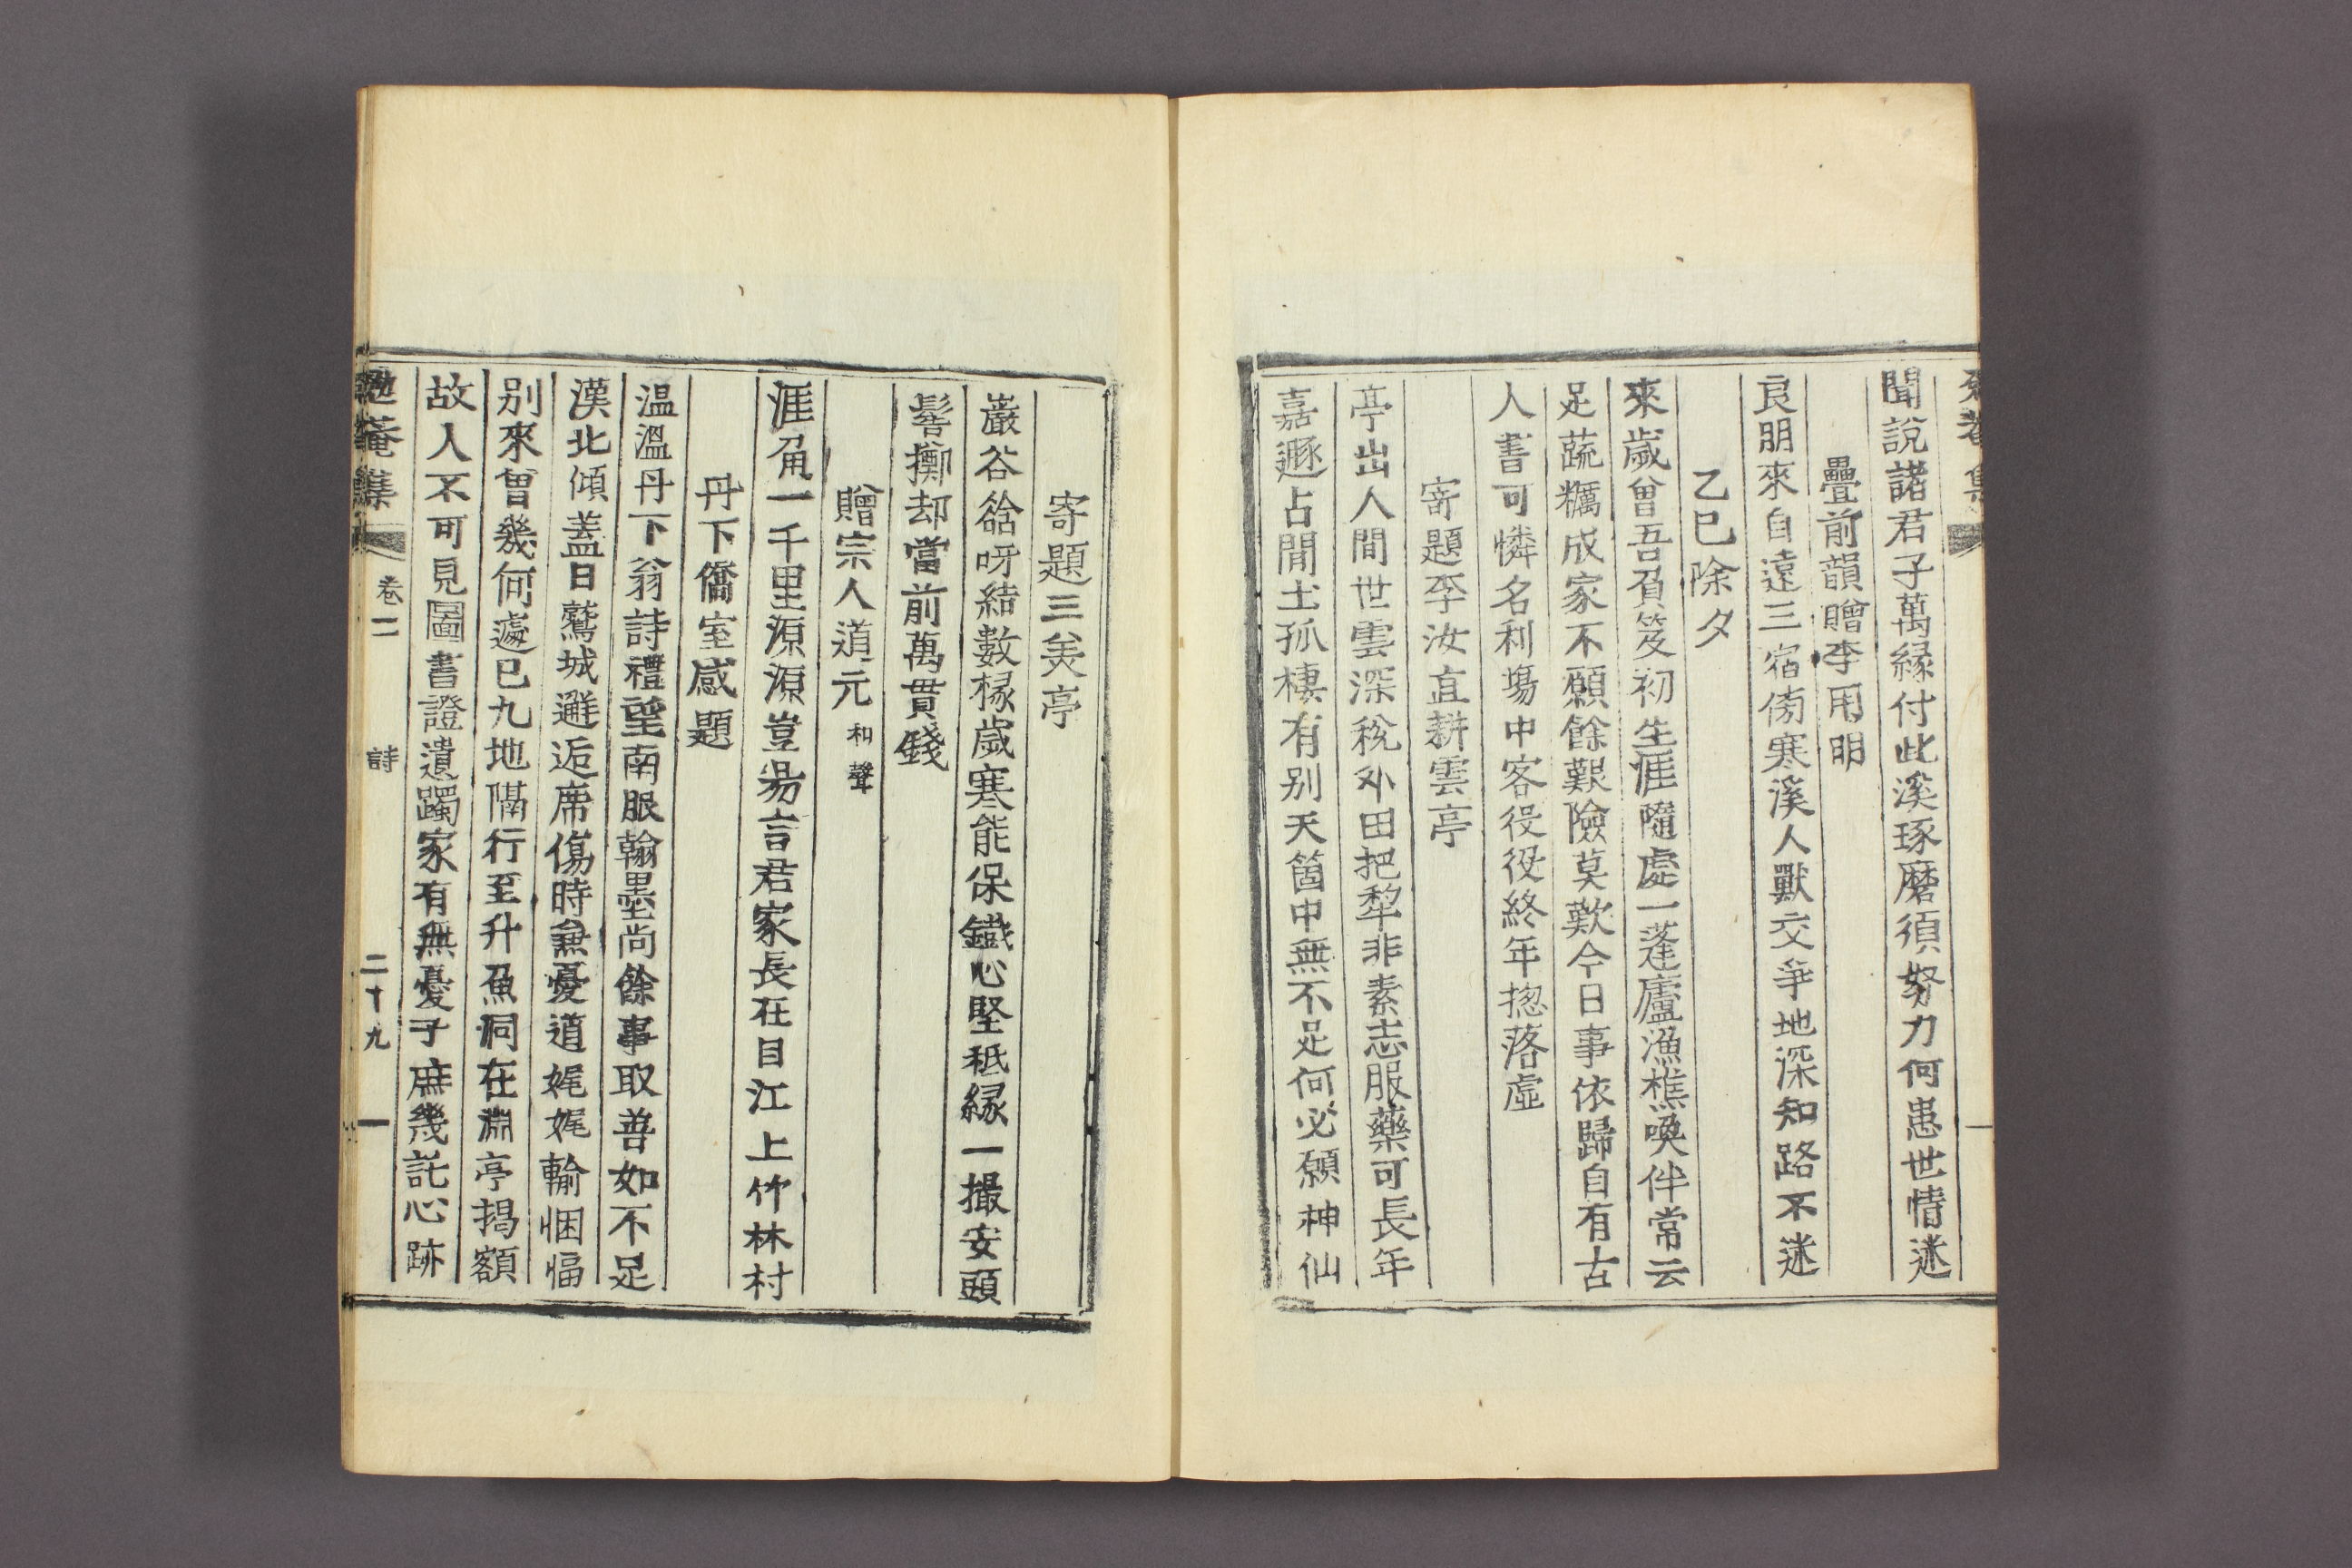 聞說諸君子萬緣付此溪琢磨須努力何患世情迷
疊前韻贈李用明
良朋來自遠三宿傍寒溪人獸交爭地深知路不迷
乙巳除夕
來歲曾吾負笈初生涯隨處一蓬廬漁樵喚伴常云
足蔬糲成家不願餘艱險莫歎今日事依歸自有古
人書可憐名利場中客役役終年揔落虛
寄題李汝直耕雲亭
亭出人間世雲深稅外田把犂非素志服藥可長年
嘉遯占閒土孤棲有别天箇中無不足何必願神仙
寄題三美亭
巖谷谽呀結數椽歲寒能保鐵心堅秪緣一撮安頭
髻擲却當前萬貫錢
贈宗人道元 和聲
涯角一千里源源豈易言君家長在目江上竹林村
丹下僑室感題
溫溫丹下翁詩禮望南服翰墨尚餘事取善如不足
漢北傾蓋日鷲城邂逅席傷時兼憂道娓娓輸悃愊
别來曾幾何遽已九地隔行至升魚洞在淵亭揭額
故人不可見圖書證遺躅家有無憂子庶幾託心跡
勉菴集 卷二 詩 二十九